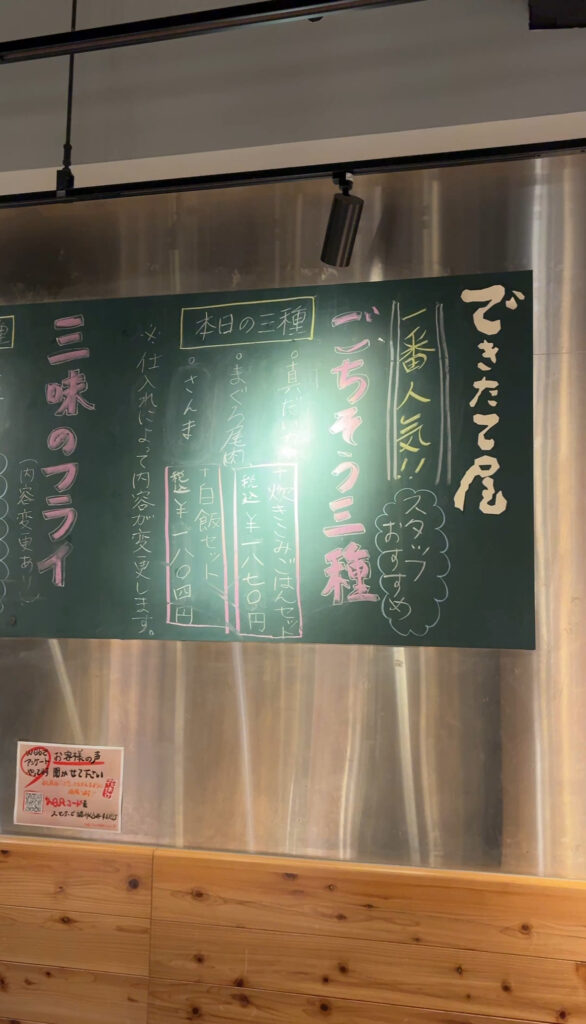 できたて屋
一番人気!!
スタッフ
おすすめ
ごちそう三種
本日の三種
・真だい
・まぐろ尾肉
・さんま
+炊きこみごはんセット
税込 ¥一八七〇円
+白飯セット
税込 ¥一八〇四円
※仕入れによって内容が変更します。
三味のフライ
(内容変更あり)
種
お客様の声
聞かせて下さい
アンケート
QRコード